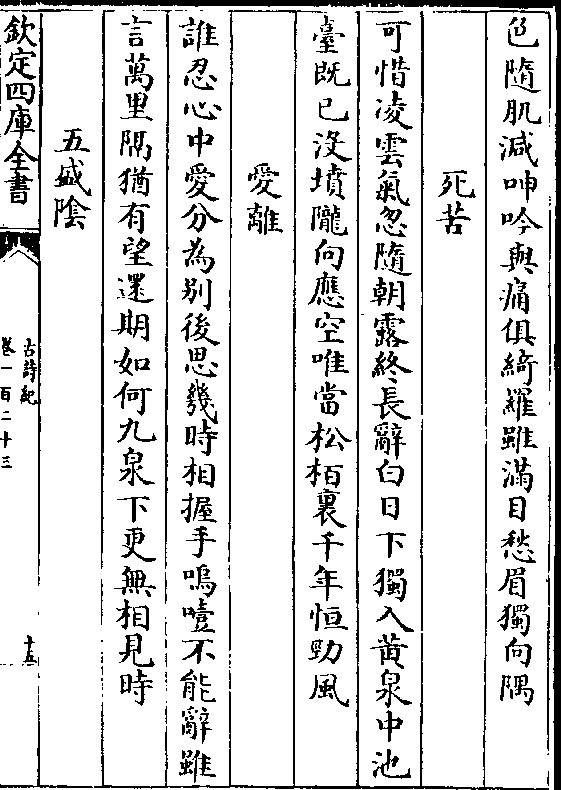 色隨肌減呻吟與痛俱綺羅雖滿目愁眉獨向隅
死苦
可惜凌雲氣忽隨朝露終長辭白日下獨入黄泉中池
臺既已沒墳隴向應空唯當松栢裏千年恒勁風
愛離
誰忍心中愛分為别後思幾時相握手嗚噎不能辭雖
言萬里隔猶有望還期如何九泉下更無相見時
五盛陰
欽定四庫全書
古詩紀
卷一百二十三
十五